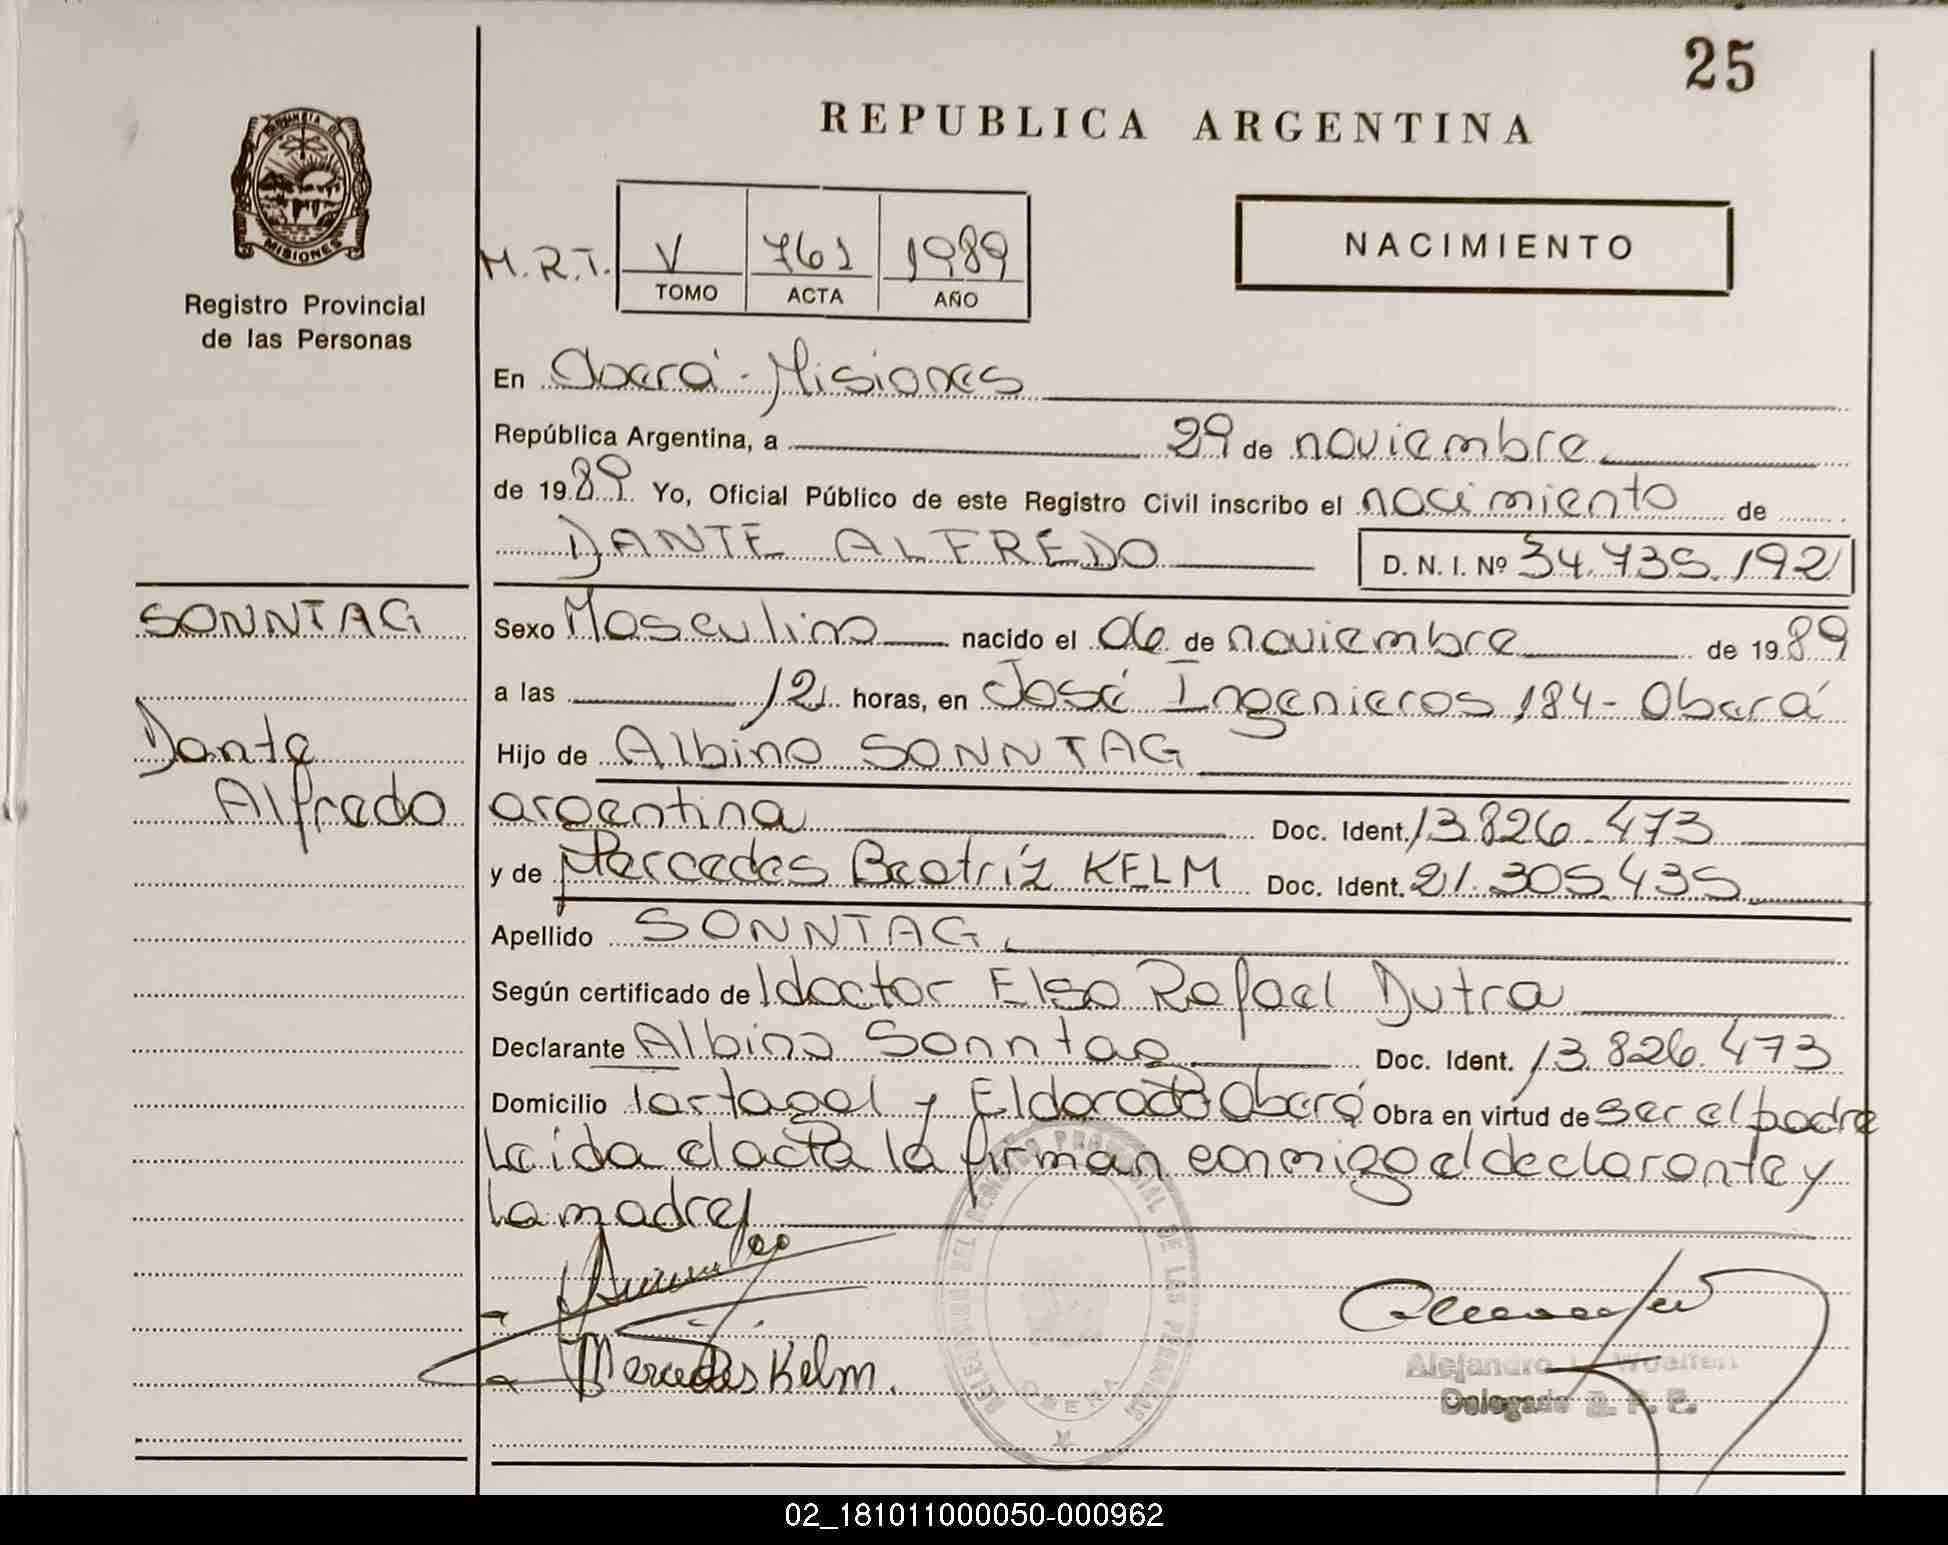 25
REPUBLICA ARGENTINA
MISIONES
Registro Provincial
de las Personas
M.R.T. V 761 1989
TOMO ACTA AÑO
NACIMIENTO
En Oberá - Misiones
República Argentina, a 29 de noviembre
de 1989. Yo, Oficial Público de este Registro Civil inscribo el nacimiento de
DANTE ALFREDO D. N. I. Nº 34.735.192
SONNTAG
Dante
Alfredo
Sexo Masculino nacido el 06 de noviembre de 1989
a las 12 horas, en José Ingenieros 184 - Oberá
Hijo de Albino SONNTAG
argentina Doc. Ident. 13.826.473
y de Mercedes Beatríz KELM Doc. Ident. 21.305.435
Apellido SONNTAG.
Según certificado del doctor Elso Rafael Dutra
Declarante Albino Sonntag Doc. Ident. 13.826.473
Domicilio Tartagal y Eldorado Oberá Obra en virtud de ser el padre
Leída el acta la firman conmigo el declarante y
la madre
Mercedes Kelm.
DELEGACION DEL REGISTRO PROVINCIAL DE LAS PERSONAS
OBERA
Alejandro
Delegado R. P. P.
02_181011000050-000962